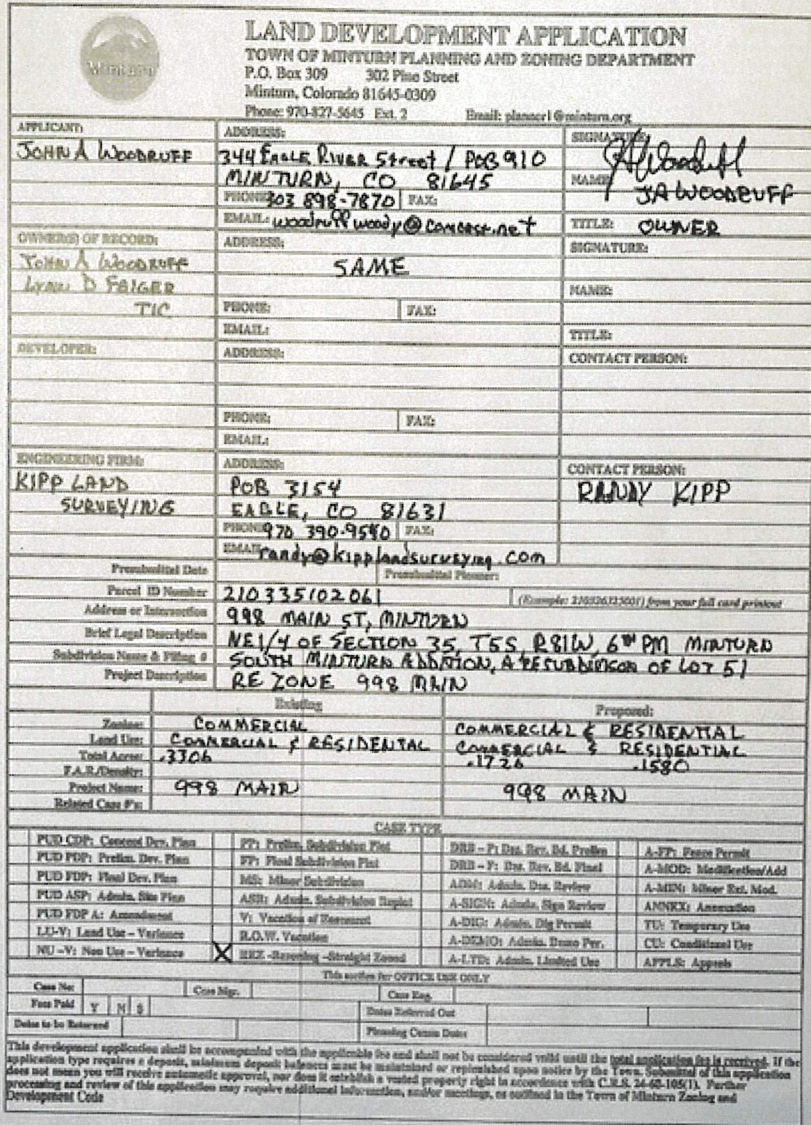 Minturn
LAND DEVELOPMENT APPLICATION
TOWN OF MINTURN PLANNING AND ZONING DEPARTMENT
P.O. Box 309 302 Pine Street
Minturn, Colorado 81645-0309
Phone: 970-827-5645 Ext. 2 Email: planner1@minturn.org
APPLICANT: ADDRESS: SIGNATURE:
JOHN A WOODRUFF 344 EAGLE RIVER Street / POB 910
MINTURN, CO 81645 NAME: JA WOODRUFF
PHONE: 303 898-7870 FAX:
EMAIL: woodruffwoody@comcast.net TITLE: OWNER
OWNER(S) OF RECORD: ADDRESS: SIGNATURE:
JOHN A WOODRUFF SAME
LYNN D FEIGER NAME:
TIC PHONE: FAX:
EMAIL: TITLE:
DEVELOPER: ADDRESS: CONTACT PERSON:
PHONE: FAX:
EMAIL:
ENGINEERING FIRM: ADDRESS: CONTACT PERSON:
KIPP LAND POB 3154 RANDY KIPP
SURVEYING EAGLE, CO 81631
PHONE: 970 390-9540 FAX:
EMAIL: randy@kipplandsurveying.com
Presubmittal Date Presubmittal Planner:
Parcel ID Number 210335102061 (Example: 210326325001) from your full card printout
Address or Intersection 998 MAIN ST, MINTURN
Brief Legal Description NE1/4 OF SECTION 35, T5S, R81W, 6TH PM MINTURN
Subdivision Name & Filing # SOUTH MINTURN ADDITION, A RESUBDIVISON OF LOT 51
Project Description RE ZONE 998 MAIN
Existing Proposed:
Zoning: COMMERCIAL COMMERCIAL & RESIDENTIAL
Land Use: COMMERCIAL & RESIDENTAL COMMERCIAL & RESIDENTIAL
Total Acres: .3306 .1726 .1580
F.A.R/Density:
Project Name: 998 MAIN 998 MAIN
Related Case #'s:
CASE TYPE
PUD CDP: Concept Dev. Plan PP: Prelim. Subdivision Plat DRB – P: Des. Rev. Bd. Prelim A-FP: Fence Permit
PUD PDP: Prelim. Dev. Plan FP: Final Subdivision Plat DRB – F: Des. Rev. Bd. Final A-MOD: Modification/Add
PUD FDP: Final Dev. Plan MS: Minor Subdivision ADR: Admin. Des. Review A-MIN: Minor Ext. Mod.
PUD ASP: Admin. Site Plan ASR: Admin. Subdivision Replat A-SIGN: Admin. Sign Review ANNEX: Annexation
PUD FDP A: Amendment V: Vacation of Easement A-DIG: Admin. Dig Permit TU: Temporary Use
LU-V: Land Use – Variance R.O.W. Vacation A-DEMO: Admin. Demo Per. CU: Conditional Use
NU –V: Non Use – Variance X REZ -Rezoning –Straight Zoned A-LTD: Admin. Limited Use APPLS: Appeals
This section for OFFICE USE ONLY
Case No: Case Mgr. Case Eng.
Fees Paid Y N $ Dates Referred Out
Dates to be Returned Planning Comm Dates
This development application shall be accompanied with the applicable fee and shall not be considered valid until the total application fee is received. If the
application type requires a deposit, minimum deposit balances must be maintained or replenished upon notice by the Town. Submittal of this application
does not mean you will receive automatic approval, nor does it establish a vested property right in accordance with C.R.S. 24-68-105(1). Further
processing and review of this application may require additional information, and/or meetings, as outlined in the Town of Minturn Zoning and
Development Code